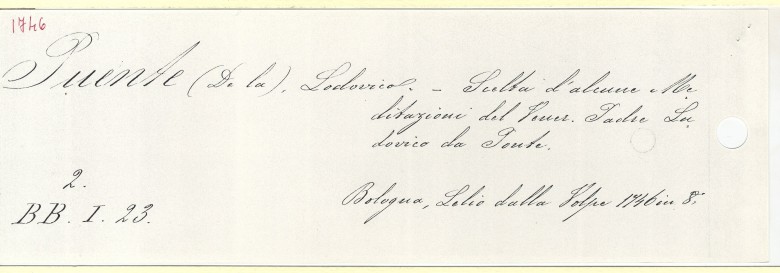 1746
Puente (De la), Lodovico. – Scelta d'alcune Me
ditazioni del Vener. Padre Lu
dovico da Ponte.
2.
BB. I. 23.
Bologna, Lelio dalla Volpe 1746 in 8°